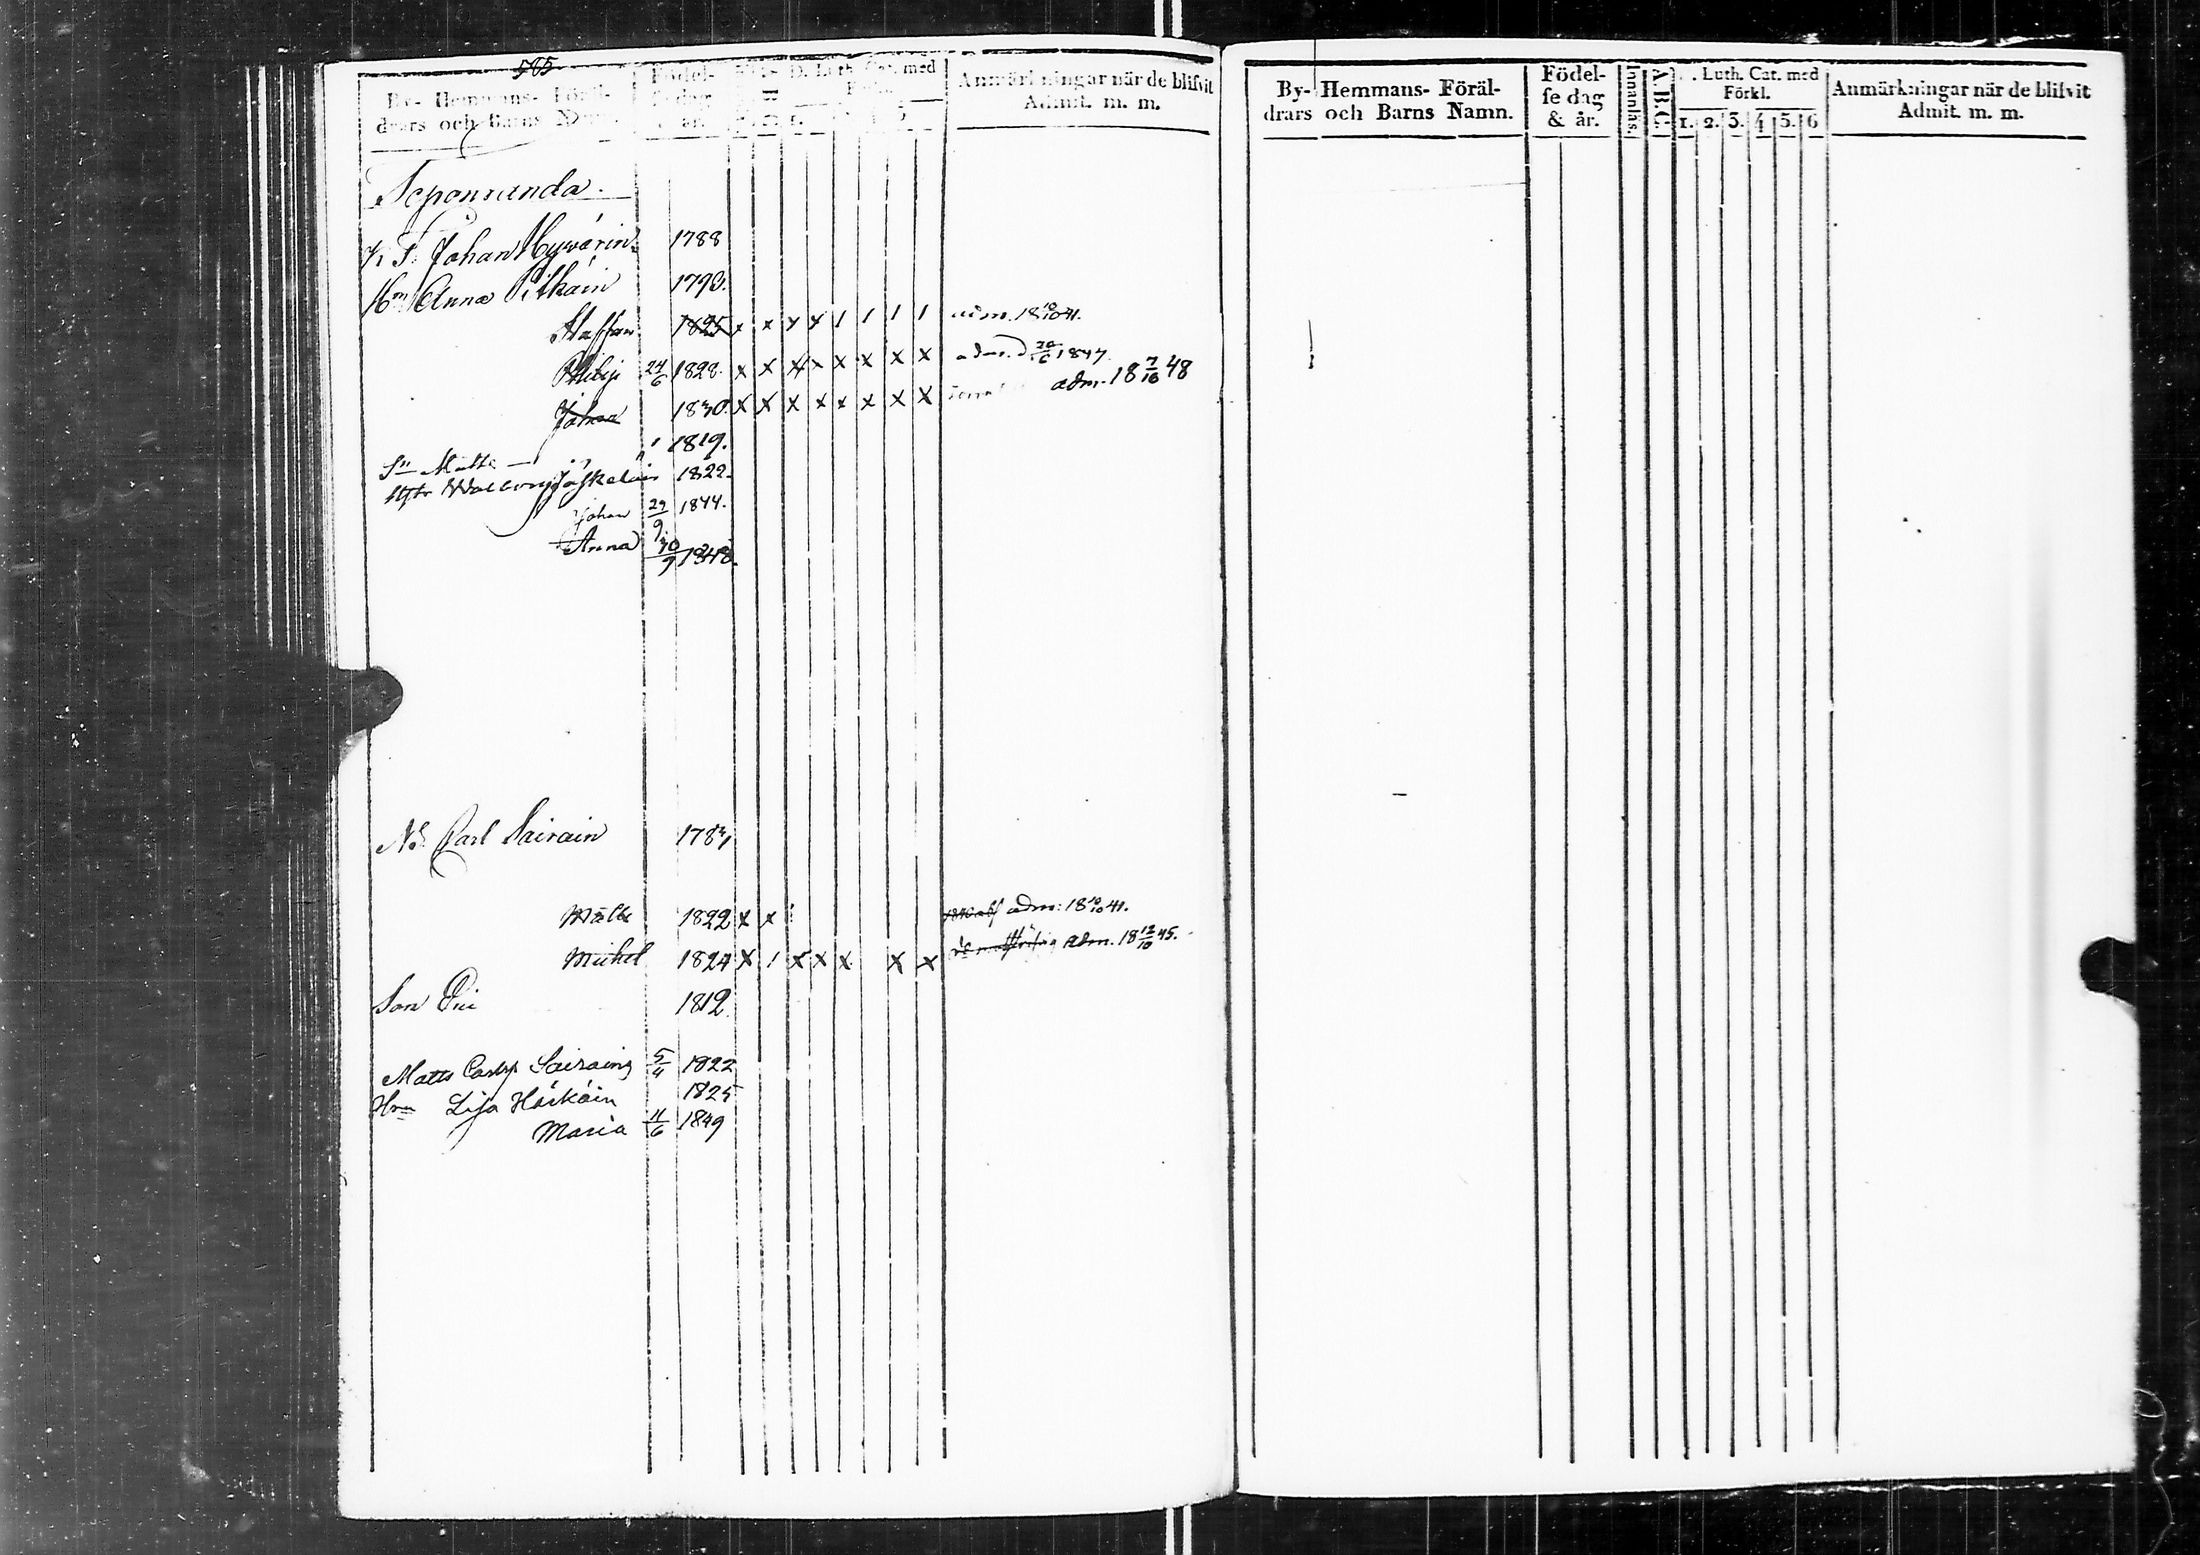 585
By- Hemmans- Föräl-
drars och Barns Namn.
Födel-
D. Luth. Cat. med
Anmärkningar när de blifvit
Admit. m. m.
Johan Hyvärin 1788
Hu Anna Pitkäin 1793.
Staffan 1825 x x x x 1 1 1 1 adm. 18 10/10 41.
Philip 24/6 1828. x x x x x x x x adm. d. 20/6 1847
Johan 1830. x x x x x x x x adm. 18 7/10 48
Sn Matts — 1819.
Hstr Walborg Jäskeläin 1822.
Johan 29/9 1844.
Anna 30/9 1848.
Carl Sairain
Matts 1822 x x adm: 18 10/10 41.
Michel 1824 x 1 x x x x x adm. 18 12/10 45.
Son 1812.
Matts Carlsp Sairain 5/4 1822
Hu Lisa Härkäin 1825
Maria 11/6 1849
By- Hemmans- Föräl-
drars och Barns Namn.
Födel-
se dag
& år.
Innanläs.
A.B.C.
Luth. Cat. med
Förkl.
1. 2. 3. 4 5. 6
Anmärkningar när de blifvit
Admit. m. m.